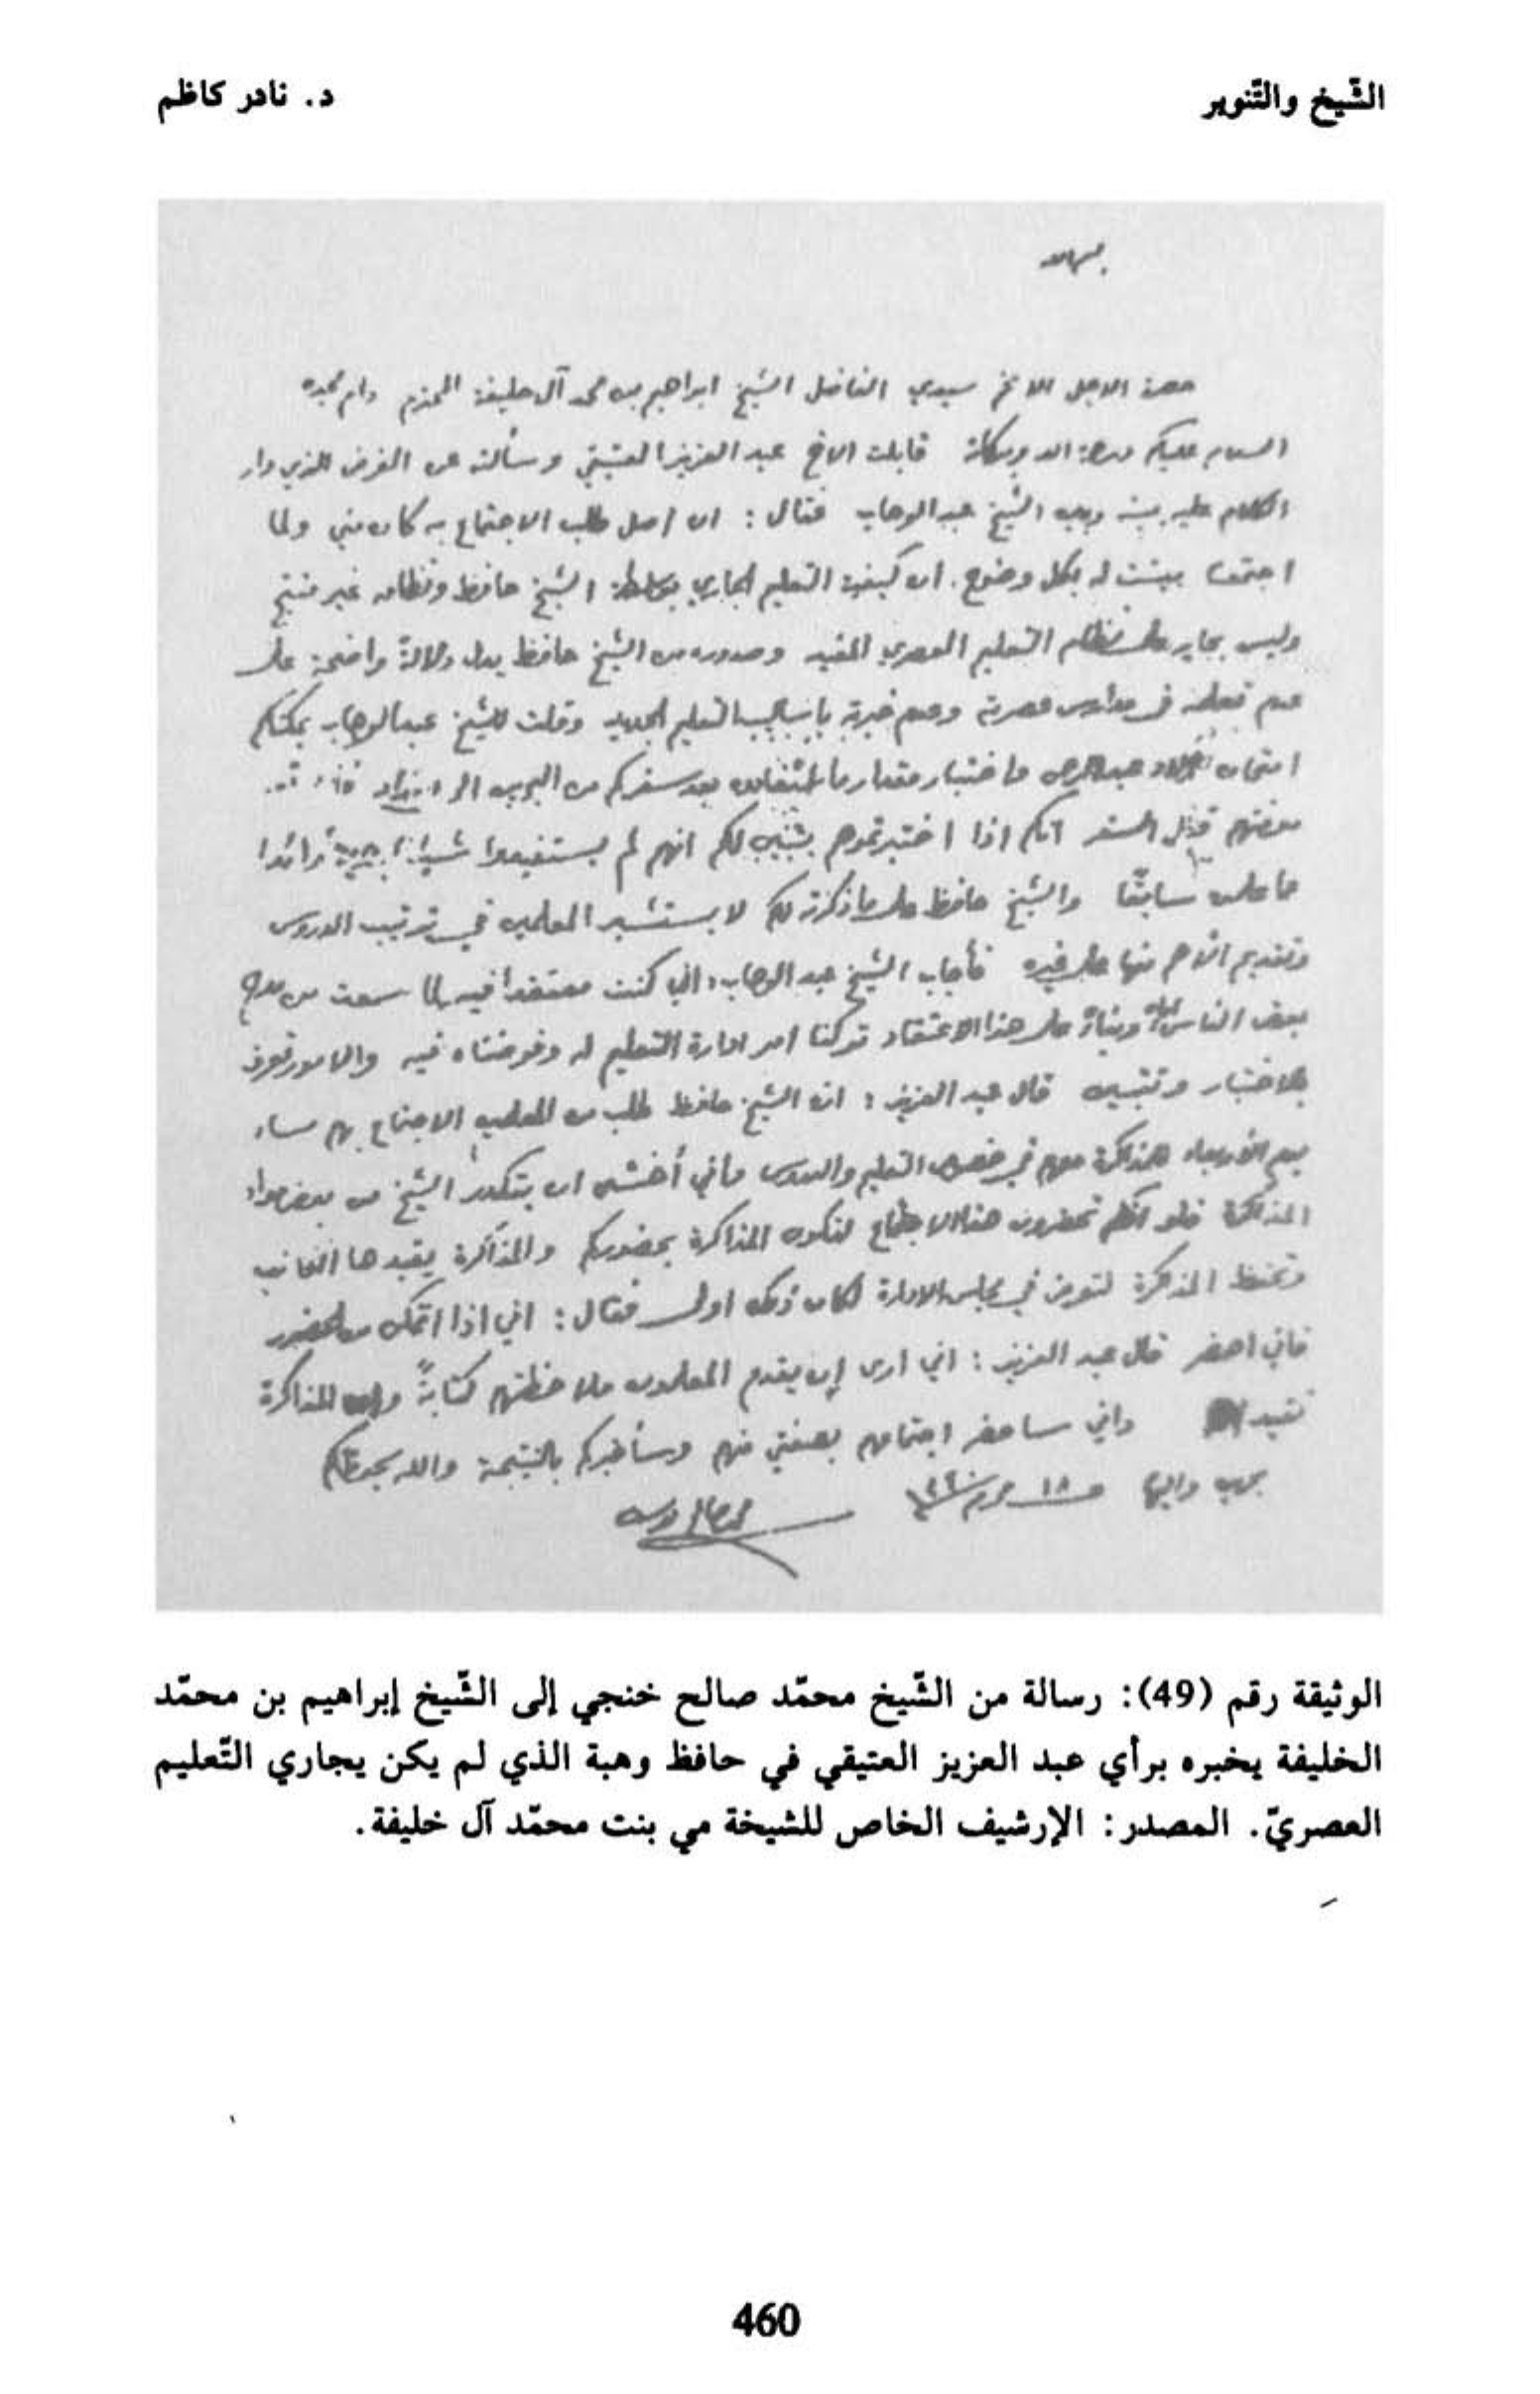 الشّيخ والتّنوير
د. نادر كاظم
بسم الله
حضرة الاجل الافخم سيدي الفاضل الشيخ ابراهيم بن محمد آل خليفة المحترم دام مجده
السلام عليكم ورحمة الله وبركاته قابلت الاخ عبد العزيز العتيقي وسألته عن الغرض الذي دار
الكلام عليه بينه وبين الشيخ عبد الوهاب فقال : ان اصل طلب الاجتماع به كان مني ولما
اجتمعنا بينت له بكل وضوح . ان كيفية التعليم الجاري بواسطة الشيخ حافظ ونظامه غير منتج
وليس بجار على نظام التعليم العصري المفيد وصدوره من الشيخ حافظ يدل دلالة واضحة على
عدم تعلمه في مدارس عصرية وعدم خبرته باساليب التعليم الجديد وقلت للشيخ عبد الوهاب يمكنكم
امتحان اولاد عبد الرحمن واختبار مقدار ما استفادوه بعد سفركم من البحرين الى
قبل السفر انكم اذا اختبرتموهم يتبين لكم انهم لم يستفيدوا شيئا زائدا
عما علمت سابقًا والشيخ حافظ على ما ذكرته لكم لا يستشير المعلمين في ترتيب الدروس
وتقديم الاهم منها على غيره فأجاب الشيخ عبد الوهاب : اني كنت معتقدا فيه لما سمعت من مدح
بعض الناس وبناءً على هذا الاعتقاد تركنا امر ادارة التعليم له وفوضناه فيه والامور تعرف
بالاختبار وتتبين قال عبد العزيز : ان الشيخ حافظ طلب من المعلمين الاجتماع بهم مساء
يوم الأربعاء للمذاكرة معهم في خصوص التعليم والدروس واني أخشى ان يتكدر الشيخ من بعض مواد
المذاكرة فلو انكم تحضرون هذا الاجتماع لتكون المذاكرة بحضوركم والمذاكرة يقيدها الكاتب
وتحفظ المذكرة لتعرض في مجلس الادارة لكان ذلك اولى فقال : اني اذا اتمكن من الحضور
فاني احضر قال عبد العزيز : اني ارى ان يقدم المعلمون ملاحظتهم كتابةً وان المذاكرة
تقيد واني ساحضر اجتماعهم بصفتي منهم وسأخبركم بالنتيجة والله يحفظكم
١٨ محرم
الوثيقة رقم (49): رسالة من الشّيخ محمّد صالح خنجي إلى الشّيخ إبراهيم بن محمّد
الخليفة يخبره برأي عبد العزيز العتيقي في حافظ وهبة الذي لم يكن يجاري التّعليم
العصريّ. المصدر: الإرشيف الخاص للشيخة مي بنت محمّد آل خليفة.
460